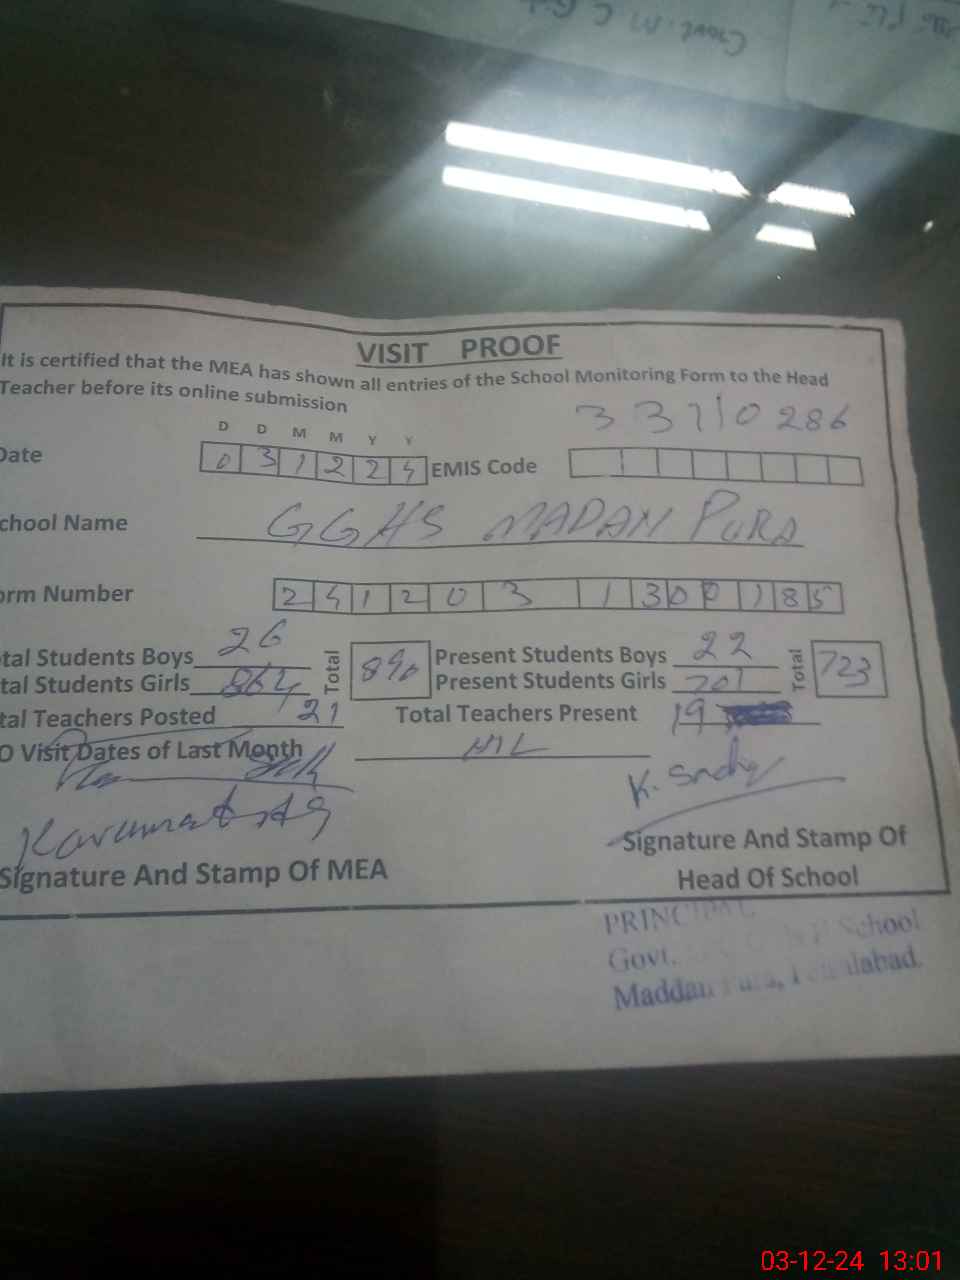 Govt. M. C
VISIT PROOF
It is certified that the MEA has shown all entries of the School Monitoring Form to the Head
Teacher before its online submission
33710286
D D M M Y Y
Date 0 3 1 2 2 4 EMIS Code
chool Name GGHS MADAN PURA
orm Number 2 4 1 2 0 3 1 3 0 0 1 8 5
tal Students Boys 26 Total 890 Present Students Boys 22 Total 723
tal Students Girls 864 Present Students Girls 701
tal Teachers Posted 21 Total Teachers Present 19
O Visit Dates of Last Month NIL
K.
Signature And Stamp Of MEA
Signature And Stamp Of
Head Of School
PRINCIPAL
Govt. School
Maddan
03-12-24 13:01